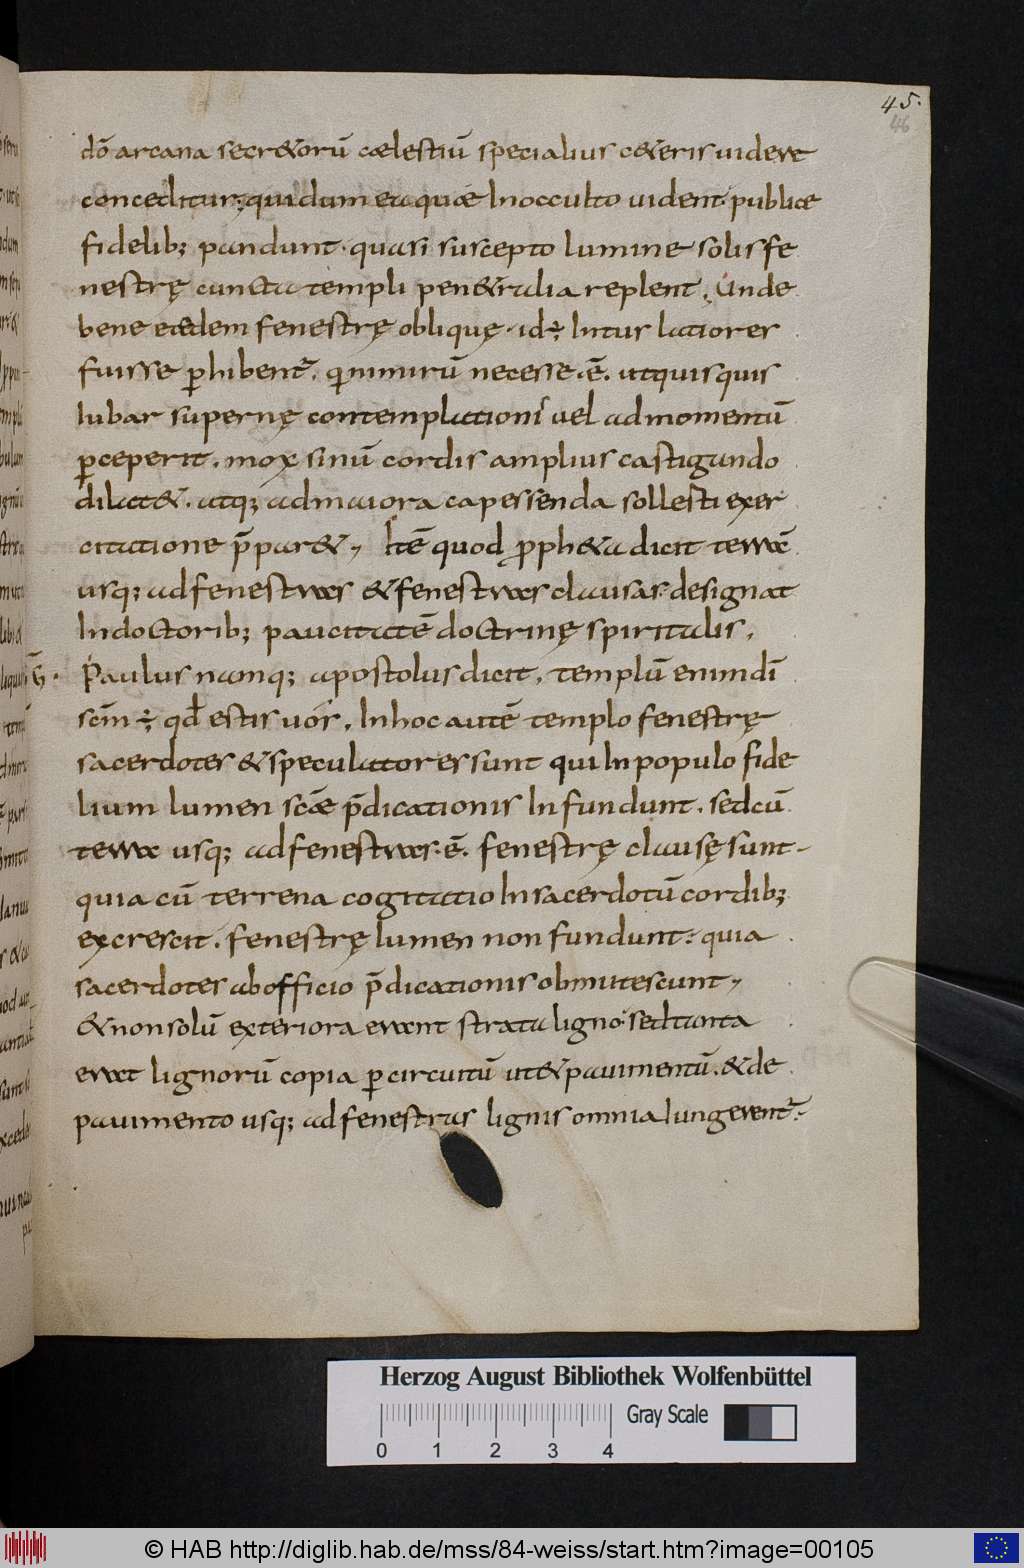 45.
46
dō arcana secr&orū cælestiū specialius c&eris videre
conceditur; qui dum ea quæ In occulto vident publicæ
fidelib; pandunt · quasi suscepto lumine solis fe
nestrę cuncta templi pen&ralia replent. Unde
bene eædem fenestrę obliquę · id÷ Intus latiores
fuisse ꝑhibent᷑. qi nimirū necesse · ē · ut quisquis
Iubar supernę contemplationi vel ad momentū
ꝑceperit. mox sinū cordis amplius castigando
dilat&. atq; ad maiora capessenda sollesti exer
citatione p̄par&, Itē quod proph&a dicit terrā
usq; ad fenestras & fenestras clausas· designat
In doctorib; paucitatē doctrinę spiritalis.
G̅ ·
Paulus namq; apostolus dicit. templū enim dī
scm̄ ÷ qd̄ estis vos. In hoc autē templo fenestrę
sacerdotes & speculatores sunt qui In populo fide
lium lumen scǣ p̄dicationis Infundunt. sed cū
terra usq; ad fenestras · ē · fenestrę clausę sunt
quia cū terrena cogitatio In sacerdotū cordib;
excrescit. fenestrę lumen non fundunt· quia
sacerdotes ab officio p̄dicationis obmutescunt,
& non solū exteriora erant strata ligno· sed tanta
erat lignorū copia ꝑ circuitū ut & pavimentū. & de
pavimento usq; ad fenestras lignis omnia Iungerent᷑·
Herzog August Bibliothek Wolfenbüttel
Gray Scale
0 1 2 3 4
© HAB http://diglib.hab.de/mss/84-weiss/start.htm?image=00105